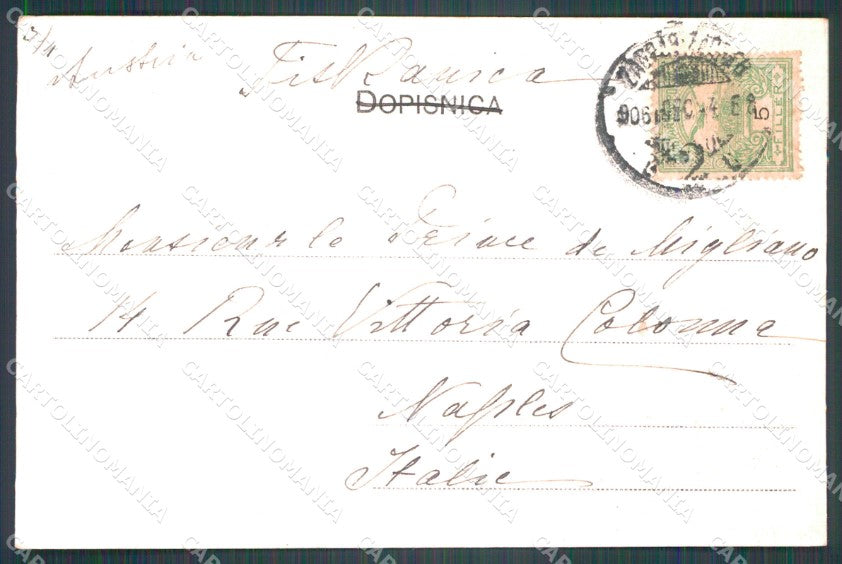 3/4
Austria Tiskanica
DOPISNICA
ZAGREB
906 DEC 4 E 8
5
FILLER
Monsieur le Prince de Migliano
14 Rue Vittoria Colonna
Naples
Italie
CARTOLINOMANIA